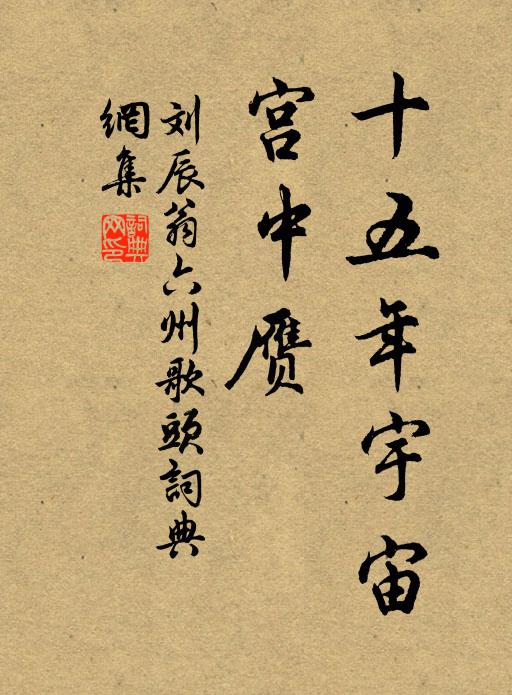 十五年宇宙
宫中赝
刘辰翁六州歌頭詞典
網集
詞典
网印